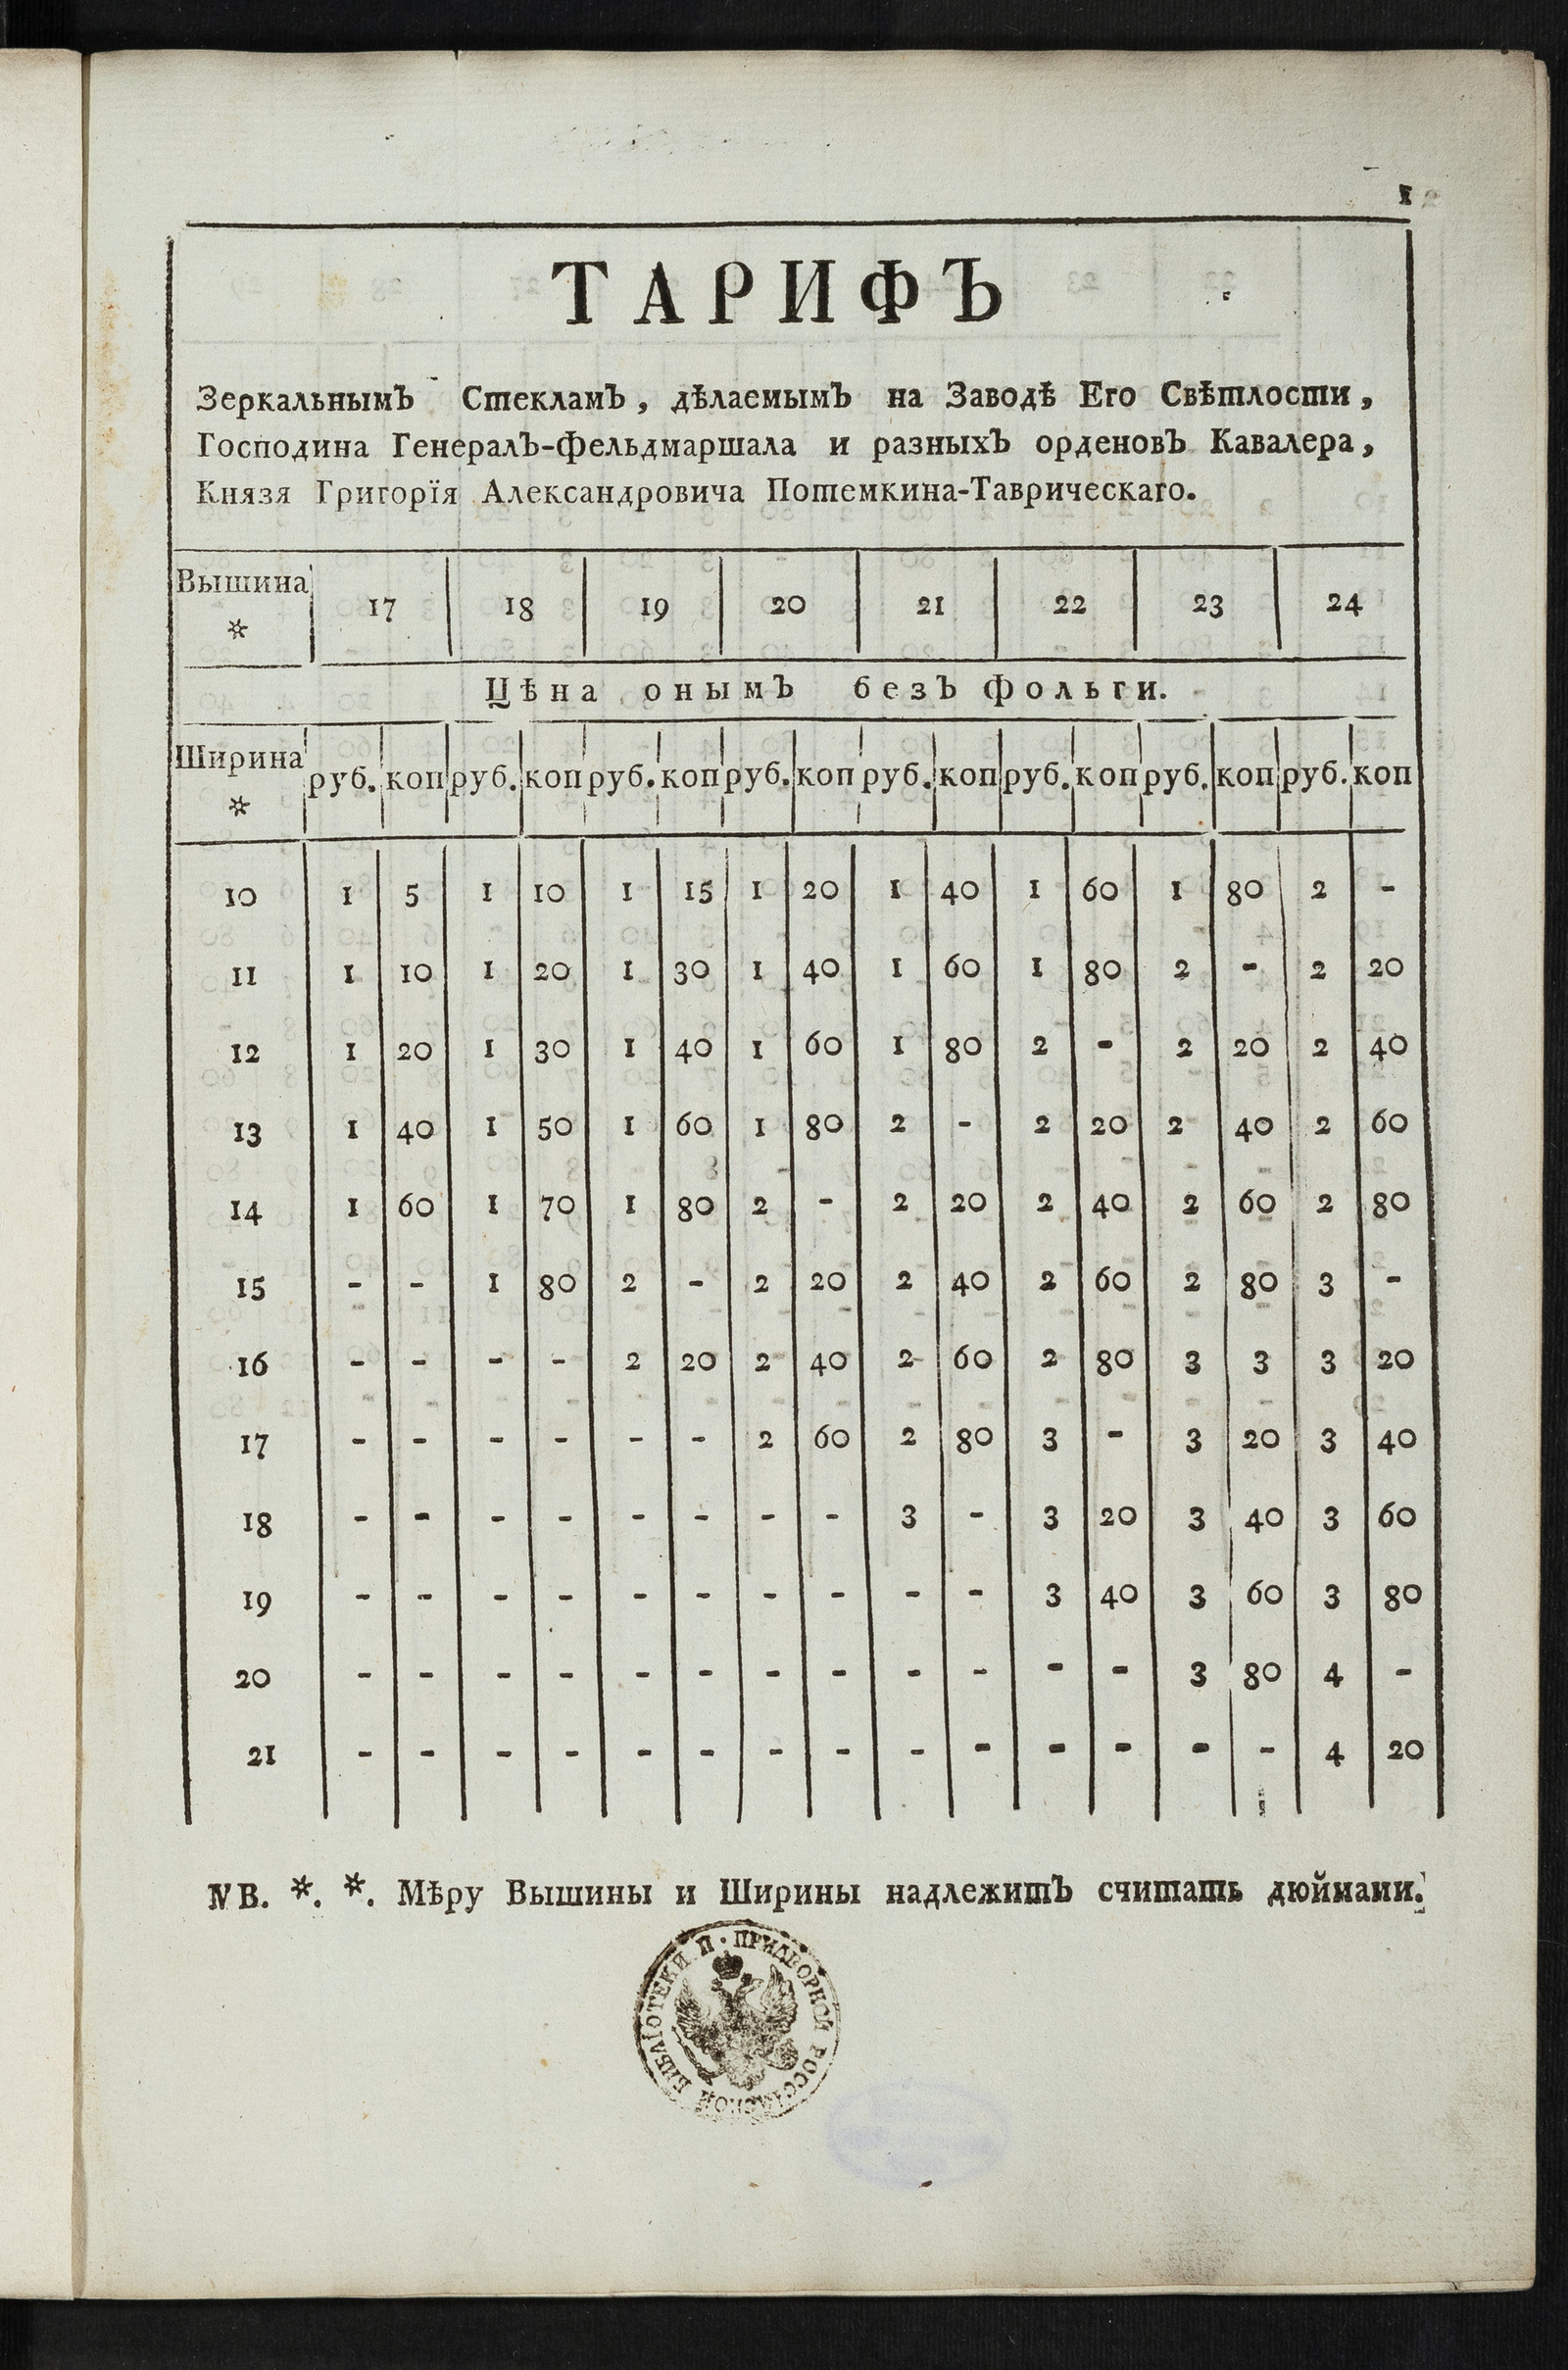 1
ТАРИФЪ
Зеркальнымъ Стекламъ, дѣлаемымъ на Заводѣ Его Свѣтлости,
Господина Генералъ-фельдмаршала и разныхъ орденовъ Кавалера,
Князя Григорїя Александровича Потемкина-Таврическаго.
Вышина * 17 18 19 20 21 22 23 24
Цѣна онымъ безъ фольги.
Ширина * руб. коп руб. коп руб. коп руб. коп руб. коп руб. коп руб. коп руб. коп
10 1 5 1 10 1 15 1 20 1 40 1 60 1 80 2 -
11 1 10 1 20 1 30 1 40 1 60 1 80 2 - 2 20
12 1 20 1 30 1 40 1 60 1 80 2 - 2 20 2 40
13 1 40 1 50 1 60 1 80 2 - 2 20 2 40 2 60
14 1 60 1 70 1 80 2 - 2 20 2 40 2 60 2 80
15 - - 1 80 2 - 2 20 2 40 2 60 2 80 3 -
16 - - - - 2 20 2 40 2 60 2 80 3 3 3 20
17 - - - - - - 2 60 2 80 3 - 3 20 3 40
18 - - - - - - - - 3 - 3 20 3 40 3 60
19 - - - - - - - - - - 3 40 3 60 3 80
20 - - - - - - - - - - - - 3 80 4 -
21 - - - - - - - - - - - - - - 4 20
NB. *. *. Мѣру Вышины и Ширины надлежитъ считать дюймами.
БИБЛІОТЕКИ П. ПРИДВОРНОЙ РОССІЙСКОЙ